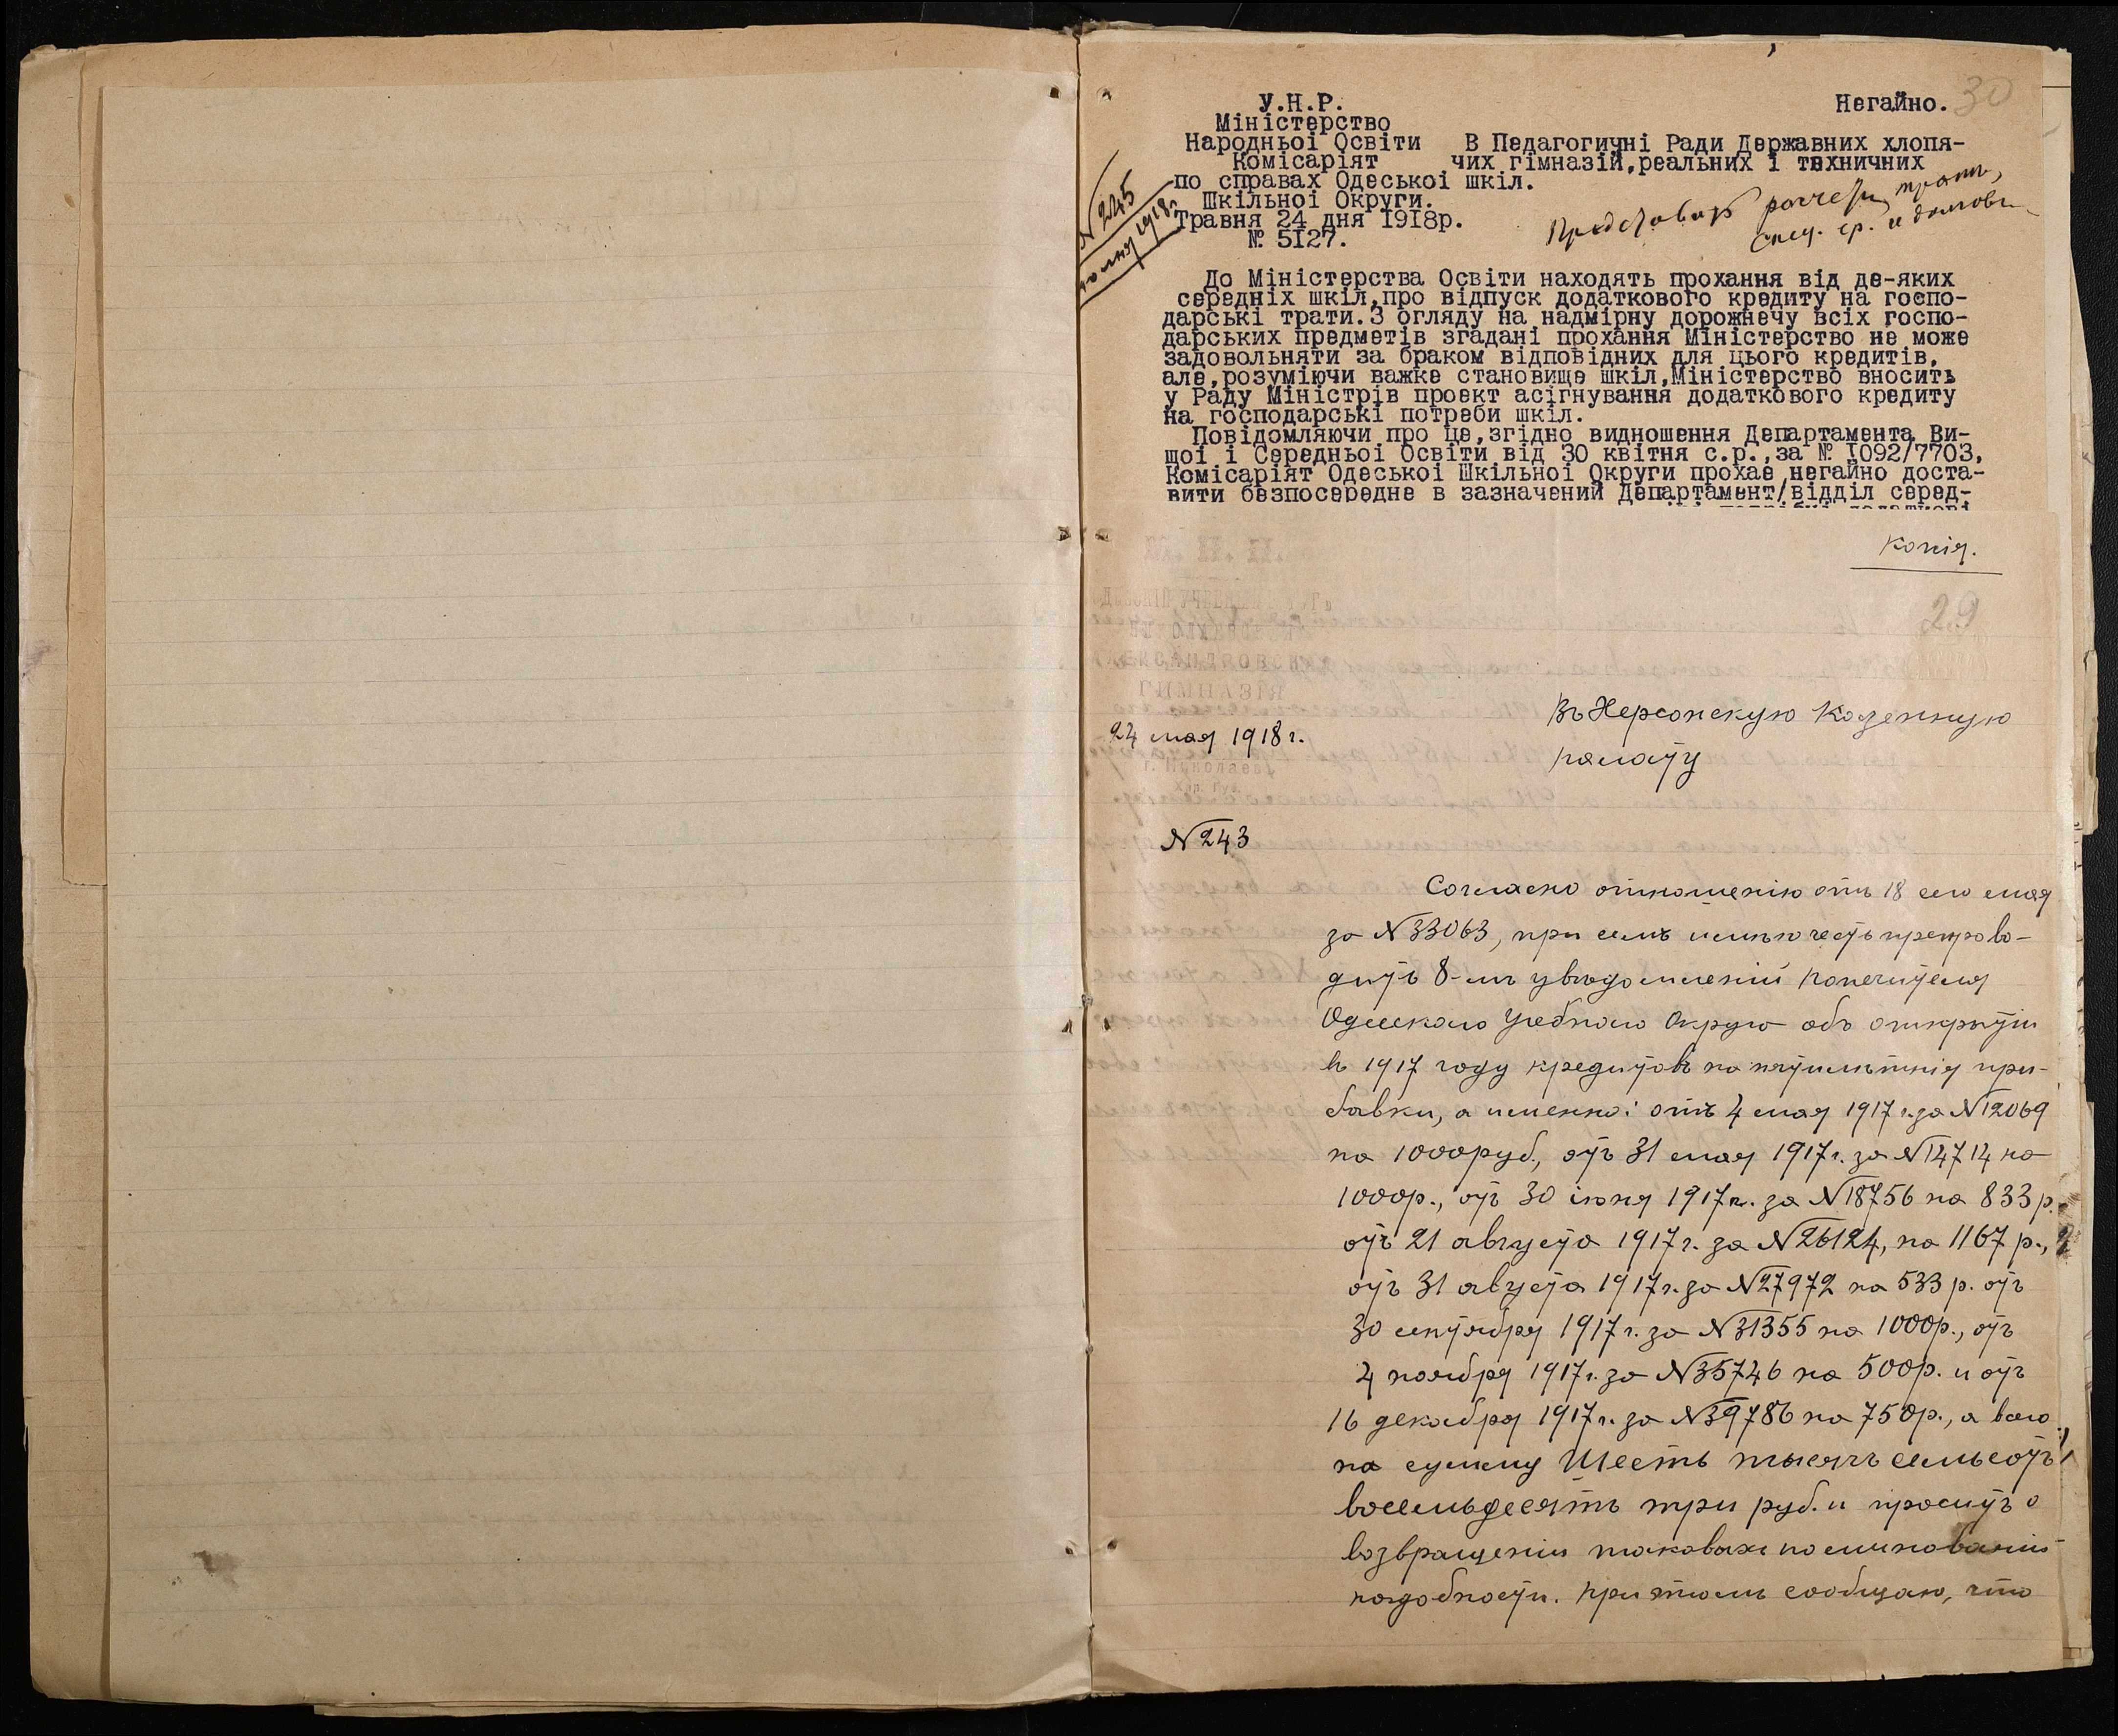 У.Н.Р.
Негайно. 30
Міністерство
Народньоі Освіти
Комісаріят
по справах Одеськоі
Шкільноі Округи.
Травня 24 дня 1918р.
№ 5127.
В Педагогичні Ради Державних хлопя-
чих гімназій,реальних і техничних
шкіл.
№ 245
1918г.
До Міністерства Освіти находять прохання від де-яких
середніх шкіл,про відпуск додаткового кредиту на госпо-
дарські трати.З огляду на надмірну дорожнечу всіх госпо-
дарських предметів згадані прохання Міністерство не може
задовольняти за браком відповідних для цього кредитів,
але,розуміючи важке становище шкіл,Міністерство вносить
у Раду Міністрів проект асігнування додаткового кредиту
на господарські потреби шкіл.
Повідомляючи про це,згідно видношення Департамента Ви-
щоі і Середньоі Освіти від 30 квітня с.р.,за № 1092/7703,
Комісаріят Одеськоі Шкільноі Округи прохає негайно доста-
вити безпосередне в зазначений Департамент/відділ серед-
Копія.
29
АЛЕКСАНДРОВСКАЯ
ГИМНАЗІЯ
24 мая 1918 г.
г. Николаевъ
Хер. Губ.
Въ Херсонскую Казенную
палату
№ 243
Согласно отношенію отъ 18 сего мая
за № 33063, при семъ имѣю честь препрово-
дить 8-мь увѣдомленій попечителя
Одесскаго Учебнаго Округа объ открытіи
въ 1917 году кредитовъ на пятилѣтнія при-
бавки, а именно: отъ 4 мая 1917 г. за № 12069
на 1000руб., отъ 31 мая 1917 г. за № 14714 на
1000р., отъ 30 іюня 1917 г. за № 18756 на 833 р.
отъ 21 августа 1917 г. за № 26124, на 1167 р.,
отъ 31 августа 1917 г. за № 27972 на 533 р. отъ
30 сентября 1917 г. за № 31355 на 1000р., отъ
4 ноября 1917 г. за № 35746 на 500р. и отъ
16 декабря 1917 г. за № 39786 на 750р., а всего
на сумму Шесть тысячъ семьсотъ
восемьдесятъ три руб. и просить о
возвращеніи таковыхъ по минованіи
надобности. При этомъ сообщаю, что